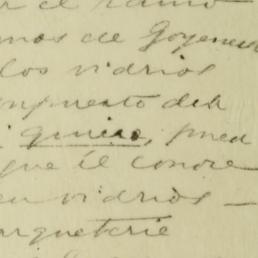 r el ramo
mos de Goyenes
los vidrios
mpuesto del
quiere, pued
que él conoce
en vidrios —
arqueterie